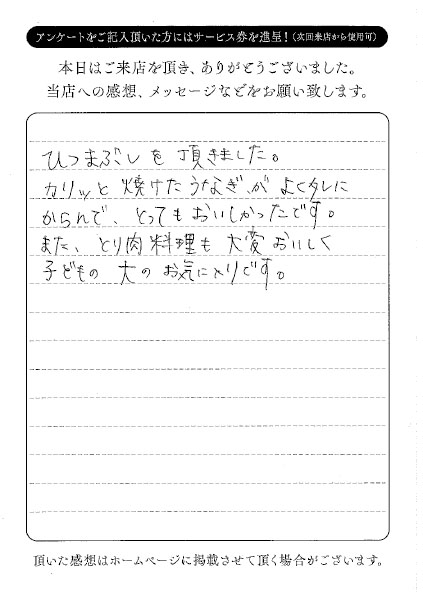 アンケートをご記入頂いた方にはサービス券を進呈！（次回来店から使用可）
本日はご来店を頂き、ありがとうございました。
当店への感想、メッセージなどをお願い致します。
ひつまぶしを頂きました。
カリッと焼けたうなぎがよくタレに
からんで、とってもおいしかったです。
また、とり肉料理も大変おいしく
子どもの大のお気に入りです。
頂いた感想はホームページに掲載させて頂く場合がございます。